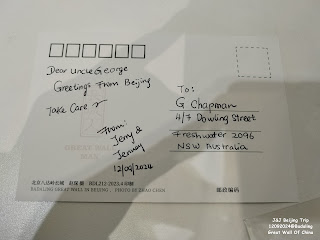 Dear Uncle George
Greetings From Beijing
Take Care
From:
Jerry &
Jenny
12/09/2024
To:
G Chapman
4/7 Dowling Street
Freshwater 2096
NSW Australia
GREAT WALL
北京八达岭长城
BADALING GREAT WALL IN BEIJING PHOTO BY ZHAO CHEN
邮政编码
J&J Beijing Trip
12092024@Badaling
Great Wall Of China